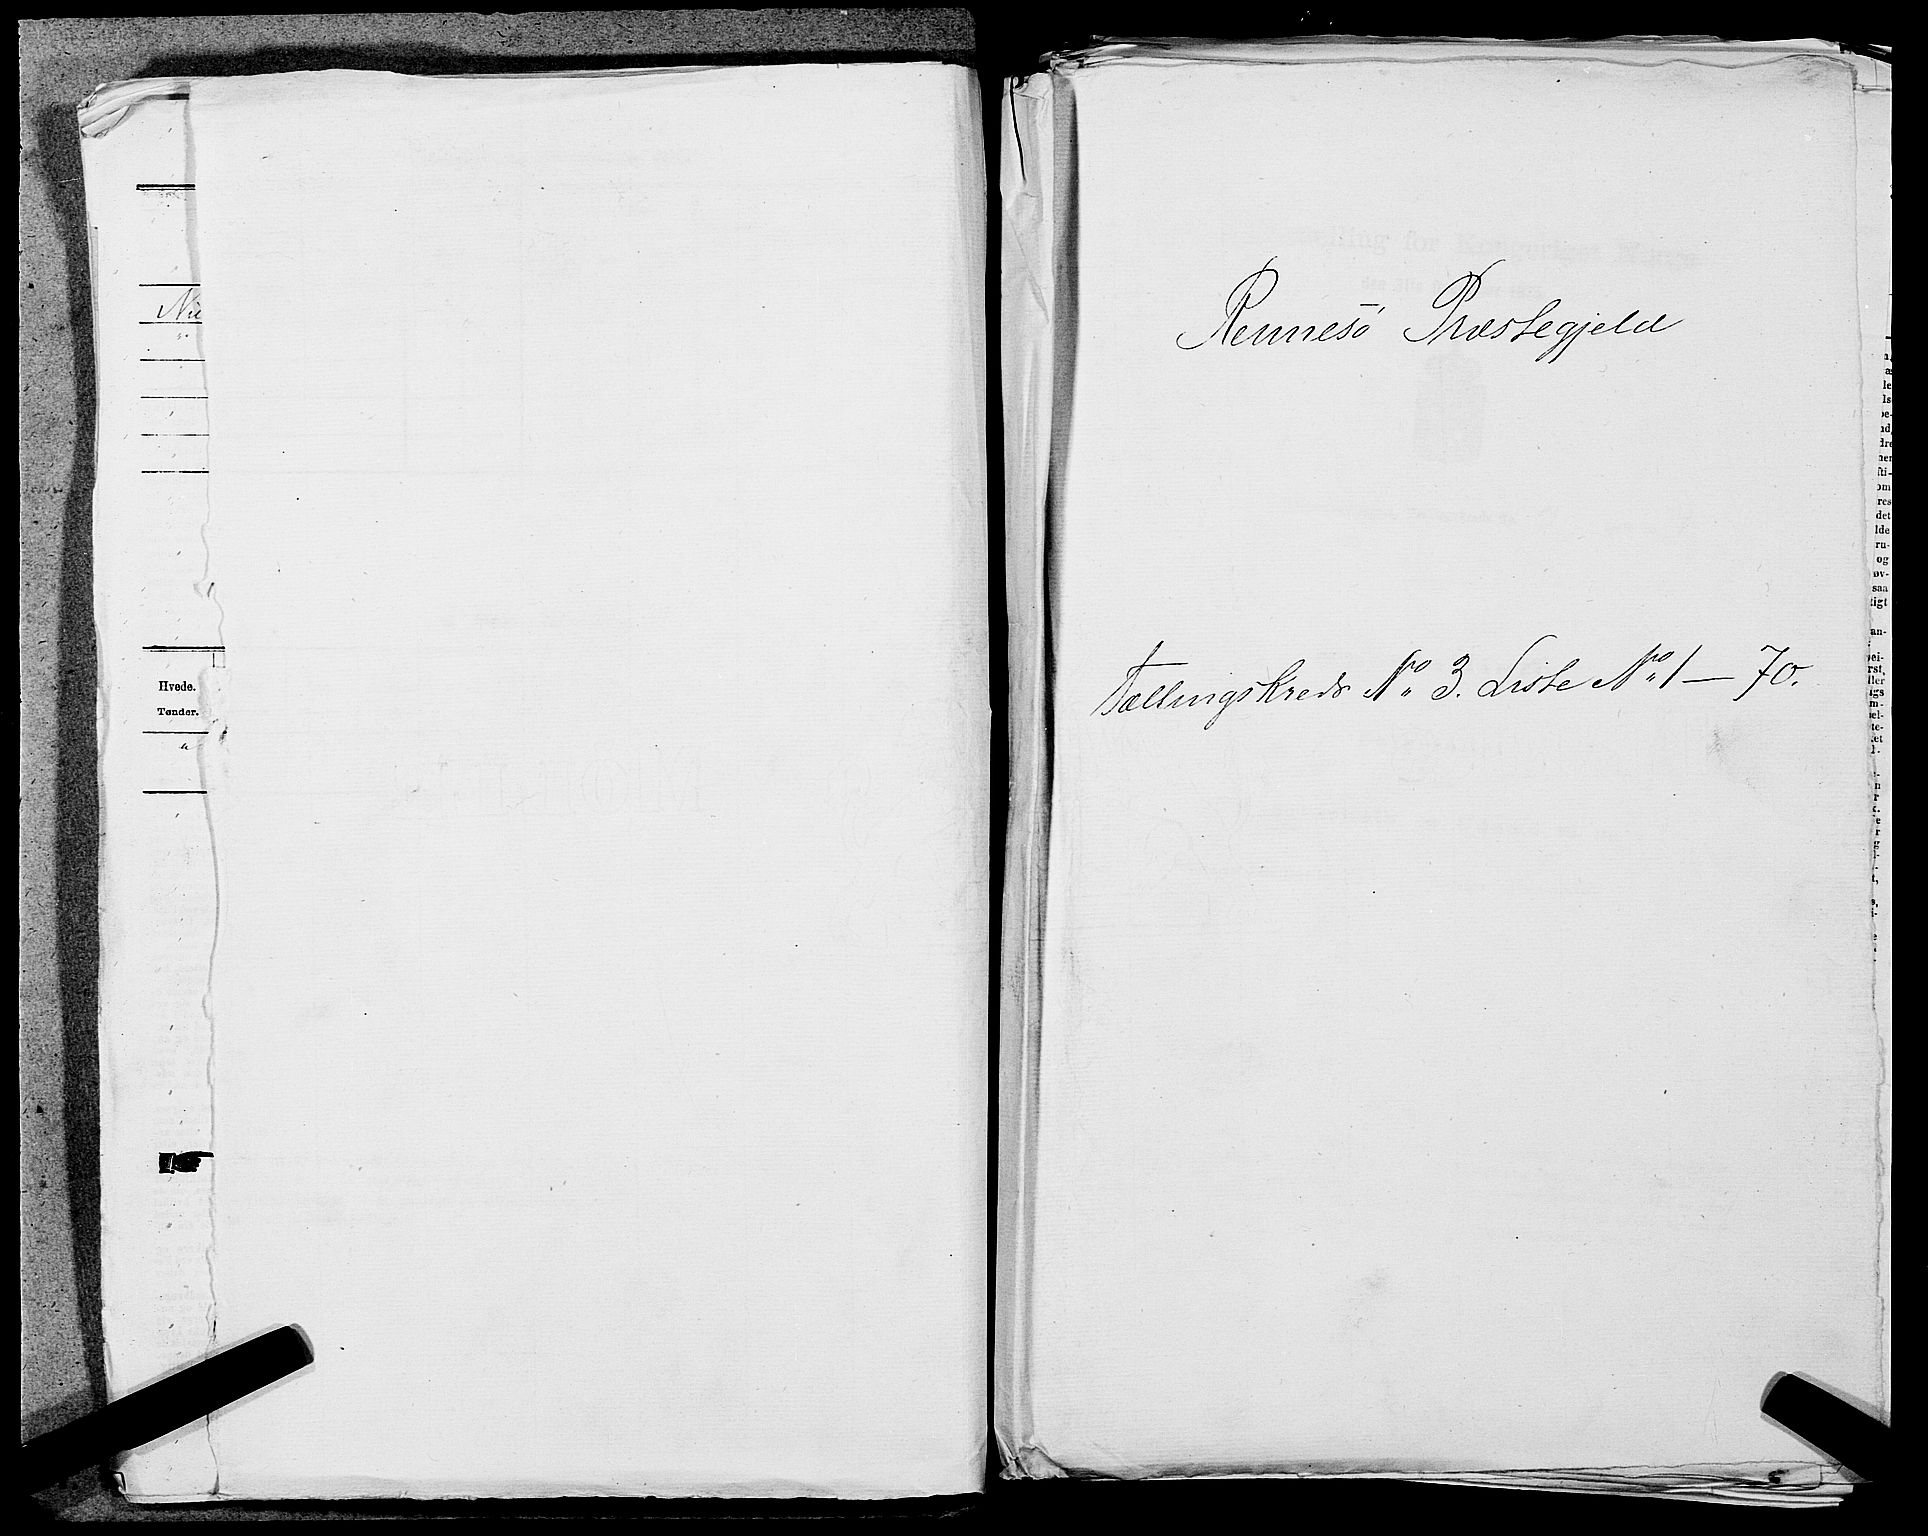 Nie
Hvede.
Tønder.
"
Rennesö Præstegjeld
Tællingskreds No 3. Liste No 1 — 70.